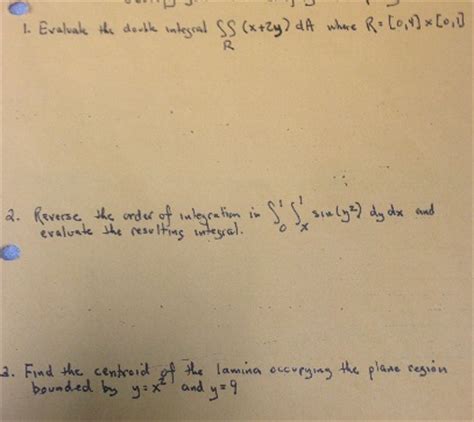 1. Evaluate the double integral ∬ (x+2y) dA where R = [0,4] × [0,1]
R
2. Reverse the order of integration in ∫₀¹ ∫ₓ¹ sin(y²) dy dx and
evaluate the resulting integral.
3. Find the centroid of the lamina occupying the plane region
bounded by y=x² and y=9